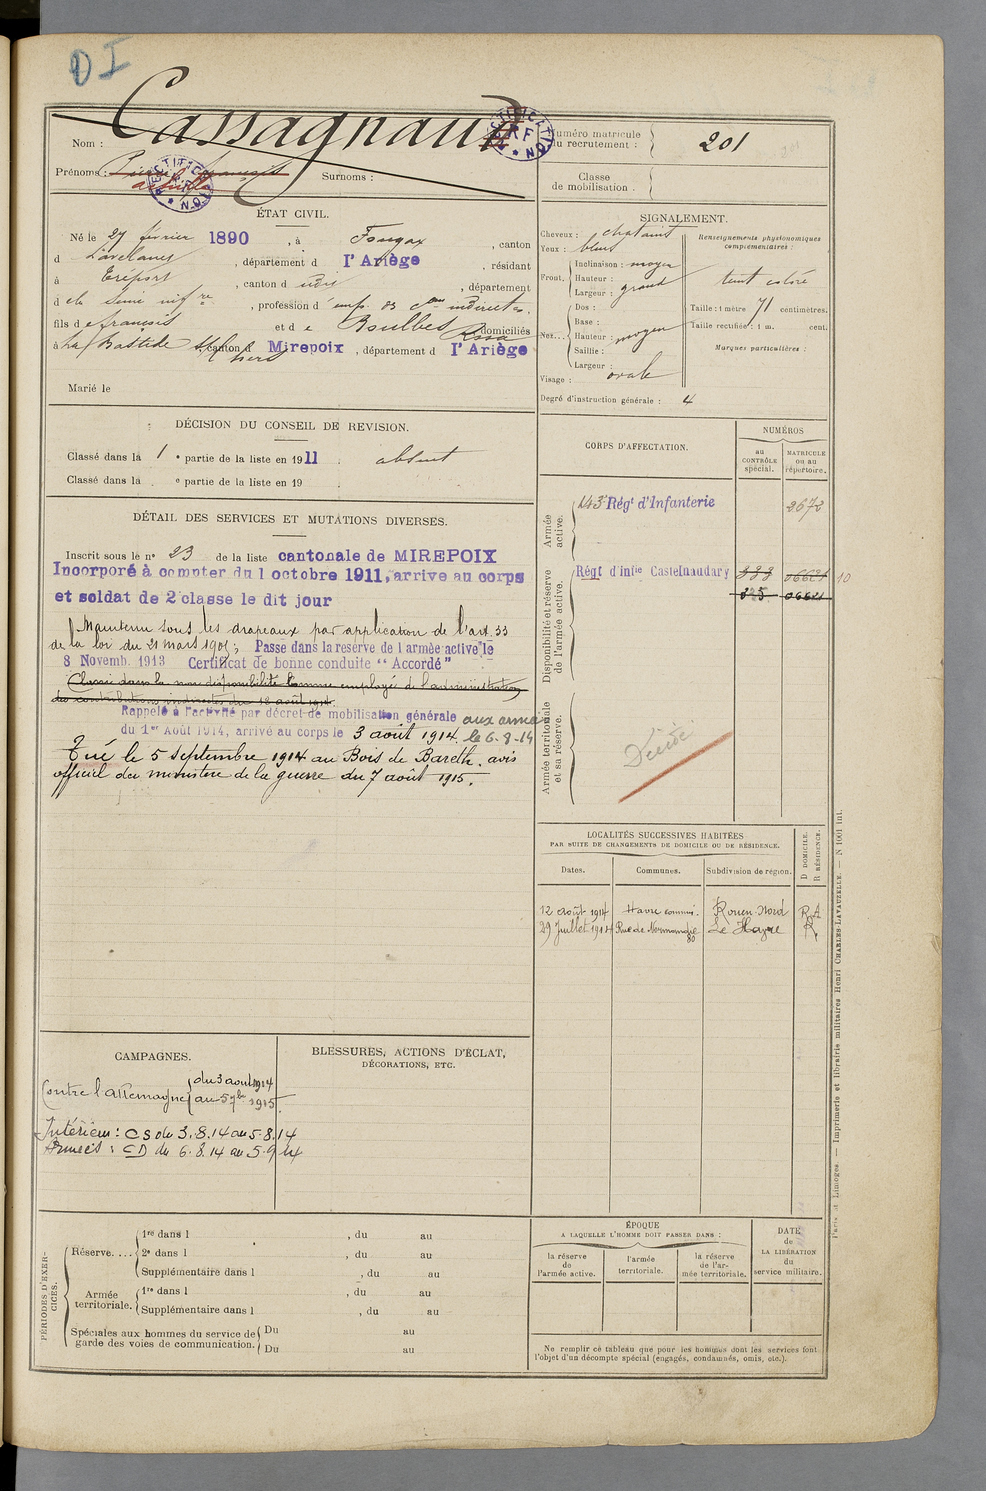 D I
Cassagnaud
Nom :
Prénoms : Pierre François
Surnoms :
RECTIFICATION RF
RECTIFICATION RF
Numéro matricule
du recrutement :
201
Classe
de mobilisation.
ÉTAT CIVIL.
Né le 27 février 1890, à Fougax, canton
d Lavelanet, département d l'Ariège, résidant
à Tréport, canton d eudit, département
d e la Seine infre, profession d' emp. des cons indirectes.
fils d e françois et d e Boulbes Rosa domiciliés
à La Bastide s/l'hers canton d Mirepoix, département d l'Ariège
Marié le
DÉCISION DU CONSEIL DE REVISION.
Classé dans la 1e partie de la liste en 1911. absent
Classé dans la e partie de la liste en 19
DÉTAIL DES SERVICES ET MUTATIONS DIVERSES.
Inscrit sous le n° 23 de la liste cantonale de MIREPOIX
Incorporé à compter du 1 octobre 1911, arrive au corps
et soldat de 2e classe le dit jour
Maintenu sous les drapeaux par application de l'art. 33
de la loi du 21 mars 1905; Passe dans la réserve de l'armée active le
8 Novemb. 1913 Certificat de bonne conduite "Accordé"
Classé dans la non disponibilité comme employé de l'administration
des contributions indirectes du 18 août 1914.
Rappelé à l'activité par décret de mobilisation générale aux armées
du 1er Août 1914, arrivé au corps le 3 août 1914. le 6-8-14
Tué le 5 septembre 1914 au Bois de Bareth. avis
officiel du ministère de la guerre du 7 août 1915.
SIGNALEMENT.
Cheveux : chatains
Yeux : bleus
Front. Inclinaison : moyen
Hauteur :
Largeur : grand
Nez... Dos :
Base :
Hauteur : moyen
Saillie :
Largeur :
Visage : ovale
Renseignements physionomiques
complémentaires :
teint coloré
Taille : 1 mètre 71 centimètres.
Taille rectifiée : 1 m. cent.
Marques particulières :
Degré d'instruction générale : 4
CORPS D'AFFECTATION.
NUMÉROS
au
CONTRÔLE
spécial.
MATRICULE
ou au
répertoire.
Armée
active.
143e Régt d'Infanterie 2672
Disponibilité et réserve
de l'armée active.
Régt d'infie Castelnaudary 333 06621 10
325 06621
Armée territoriale
et sa réserve.
Décédé
LOCALITÉS SUCCESSIVES HABITÉES
PAR SUITE DE CHANGEMENTS DE DOMICILE OU DE RÉSIDENCE.
Dates.
Communes.
Subdivision de région.
D DOMICILE.
R RÉSIDENCE.
12 août 1914 Havre Rouen-Nord R.A
29 Juillet 1914 Rue de Normandie 80 Le Havre R
CAMPAGNES.
Contre l'allemagne du 3 août 1914
au 5 7bre 1915.
Intérieur : CS du 3.8.14 au 5.8.14
Armées : CD du 6.8.14 au 5.9.14
BLESSURES, ACTIONS D'ÉCLAT,
DÉCORATIONS, ETC.
PÉRIODES D'EXER-
CICES.
Réserve.... 1re dans l , du au
2e dans l , du au
Supplémentaire dans l , du au
Armée
territoriale. 1re dans l , du au
Supplémentaire dans l , du au
Spéciales aux hommes du service de
garde des voies de communication. Du au
Du au
ÉPOQUE
A LAQUELLE L'HOMME DOIT PASSER DANS :
la réserve
de
l'armée active.
l'armée
territoriale.
la réserve
de l'ar-
mée territoriale.
DATE
de
LA LIBÉRATION
du
service militaire.
Ne remplir ce tableau que pour les hommes dont les services font
l'objet d'un décompte spécial (engagés, condamnés, omis, etc.).
Paris et Limoges. — Imprimerie et librairie militaires Henri CHARLES-LAVAUZELLE. — N 1001 int.